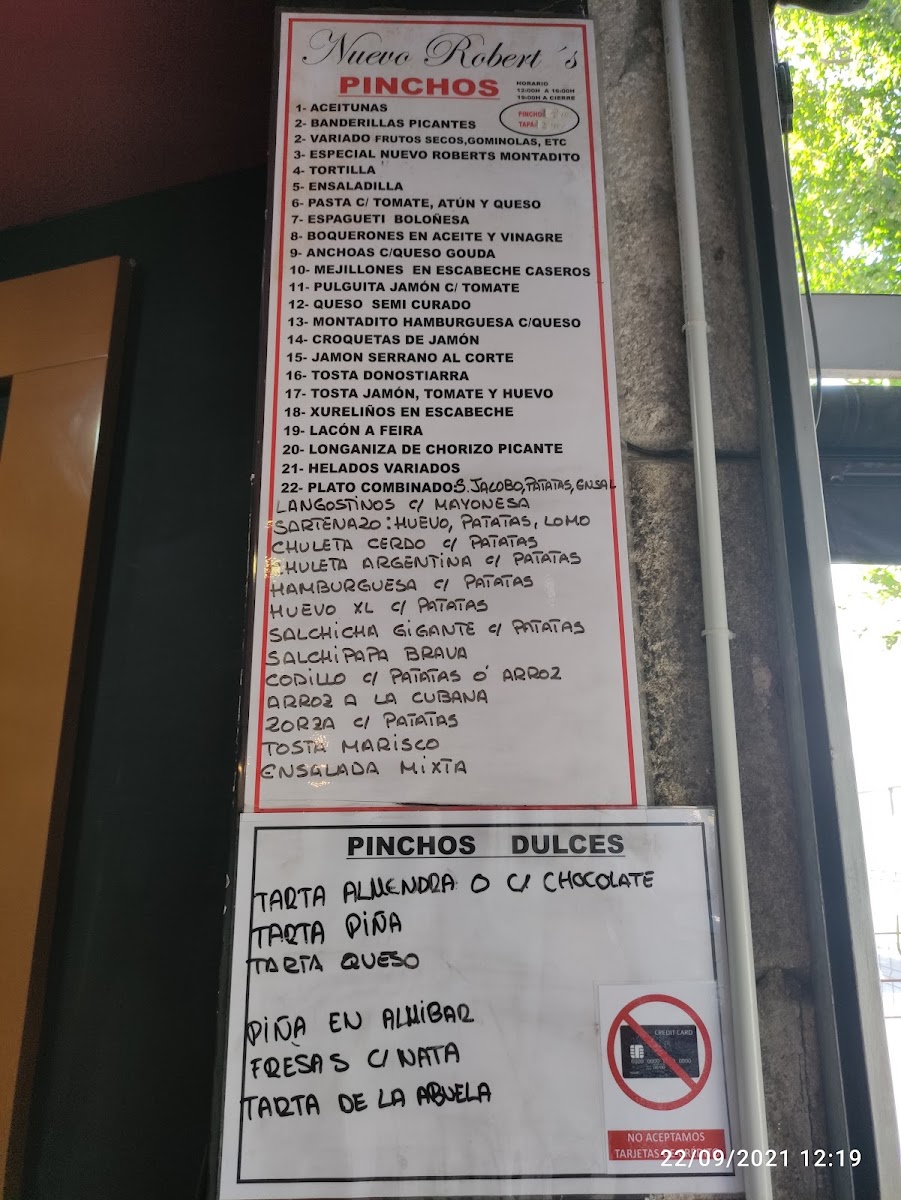 Nuevo Robert´s
PINCHOS
HORARIO
12:00H A 16:00H
19:00H A CIERRE
PINCHO
TAPA
1- ACEITUNAS
2- BANDERILLAS PICANTES
2- VARIADO FRUTOS SECOS,GOMINOLAS, ETC
3- ESPECIAL NUEVO ROBERTS MONTADITO
4- TORTILLA
5- ENSALADILLA
6- PASTA C/ TOMATE, ATÚN Y QUESO
7- ESPAGUETI BOLOÑESA
8- BOQUERONES EN ACEITE Y VINAGRE
9- ANCHOAS C/QUESO GOUDA
10- MEJILLONES EN ESCABECHE CASEROS
11- PULGUITA JAMÓN C/ TOMATE
12- QUESO SEMI CURADO
13- MONTADITO HAMBURGUESA C/QUESO
14- CROQUETAS DE JAMÓN
15- JAMON SERRANO AL CORTE
16- TOSTA DONOSTIARRA
17- TOSTA JAMÓN, TOMATE Y HUEVO
18- XURELIÑOS EN ESCABECHE
19- LACÓN A FEIRA
20- LONGANIZA DE CHORIZO PICANTE
21- HELADOS VARIADOS
22- PLATO COMBINADO:S. JACOBO, PATATAS, ENSAL
LANGOSTINOS C/ MAYONESA
SARTENAZO: HUEVO, PATATAS, LOMO
CHULETA CERDO C/ PATATAS
CHULETA ARGENTINA C/ PATATAS
HAMBURGUESA C/ PATATAS
HUEVO XL C/ PATATAS
SALCHICHA GIGANTE C/ PATATAS
SALCHIPAPA BRAVA
CODILLO C/ PATATAS Ó ARROZ
ARROZ A LA CUBANA
ZORZA C/ PATATAS
TOSTA MARISCO
ENSALADA MIXTA
PINCHOS DULCES
TARTA ALMENDRA O C/ CHOCOLATE
TARTA PIÑA
TARTA QUESO
PIÑA EN ALMIBAR
FRESAS C/ NATA
TARTA DE LA ABUELA
CREDIT CARD
NO ACEPTAMOS
TARJETAS DE CRÉDITO
22/09/2021 12:19